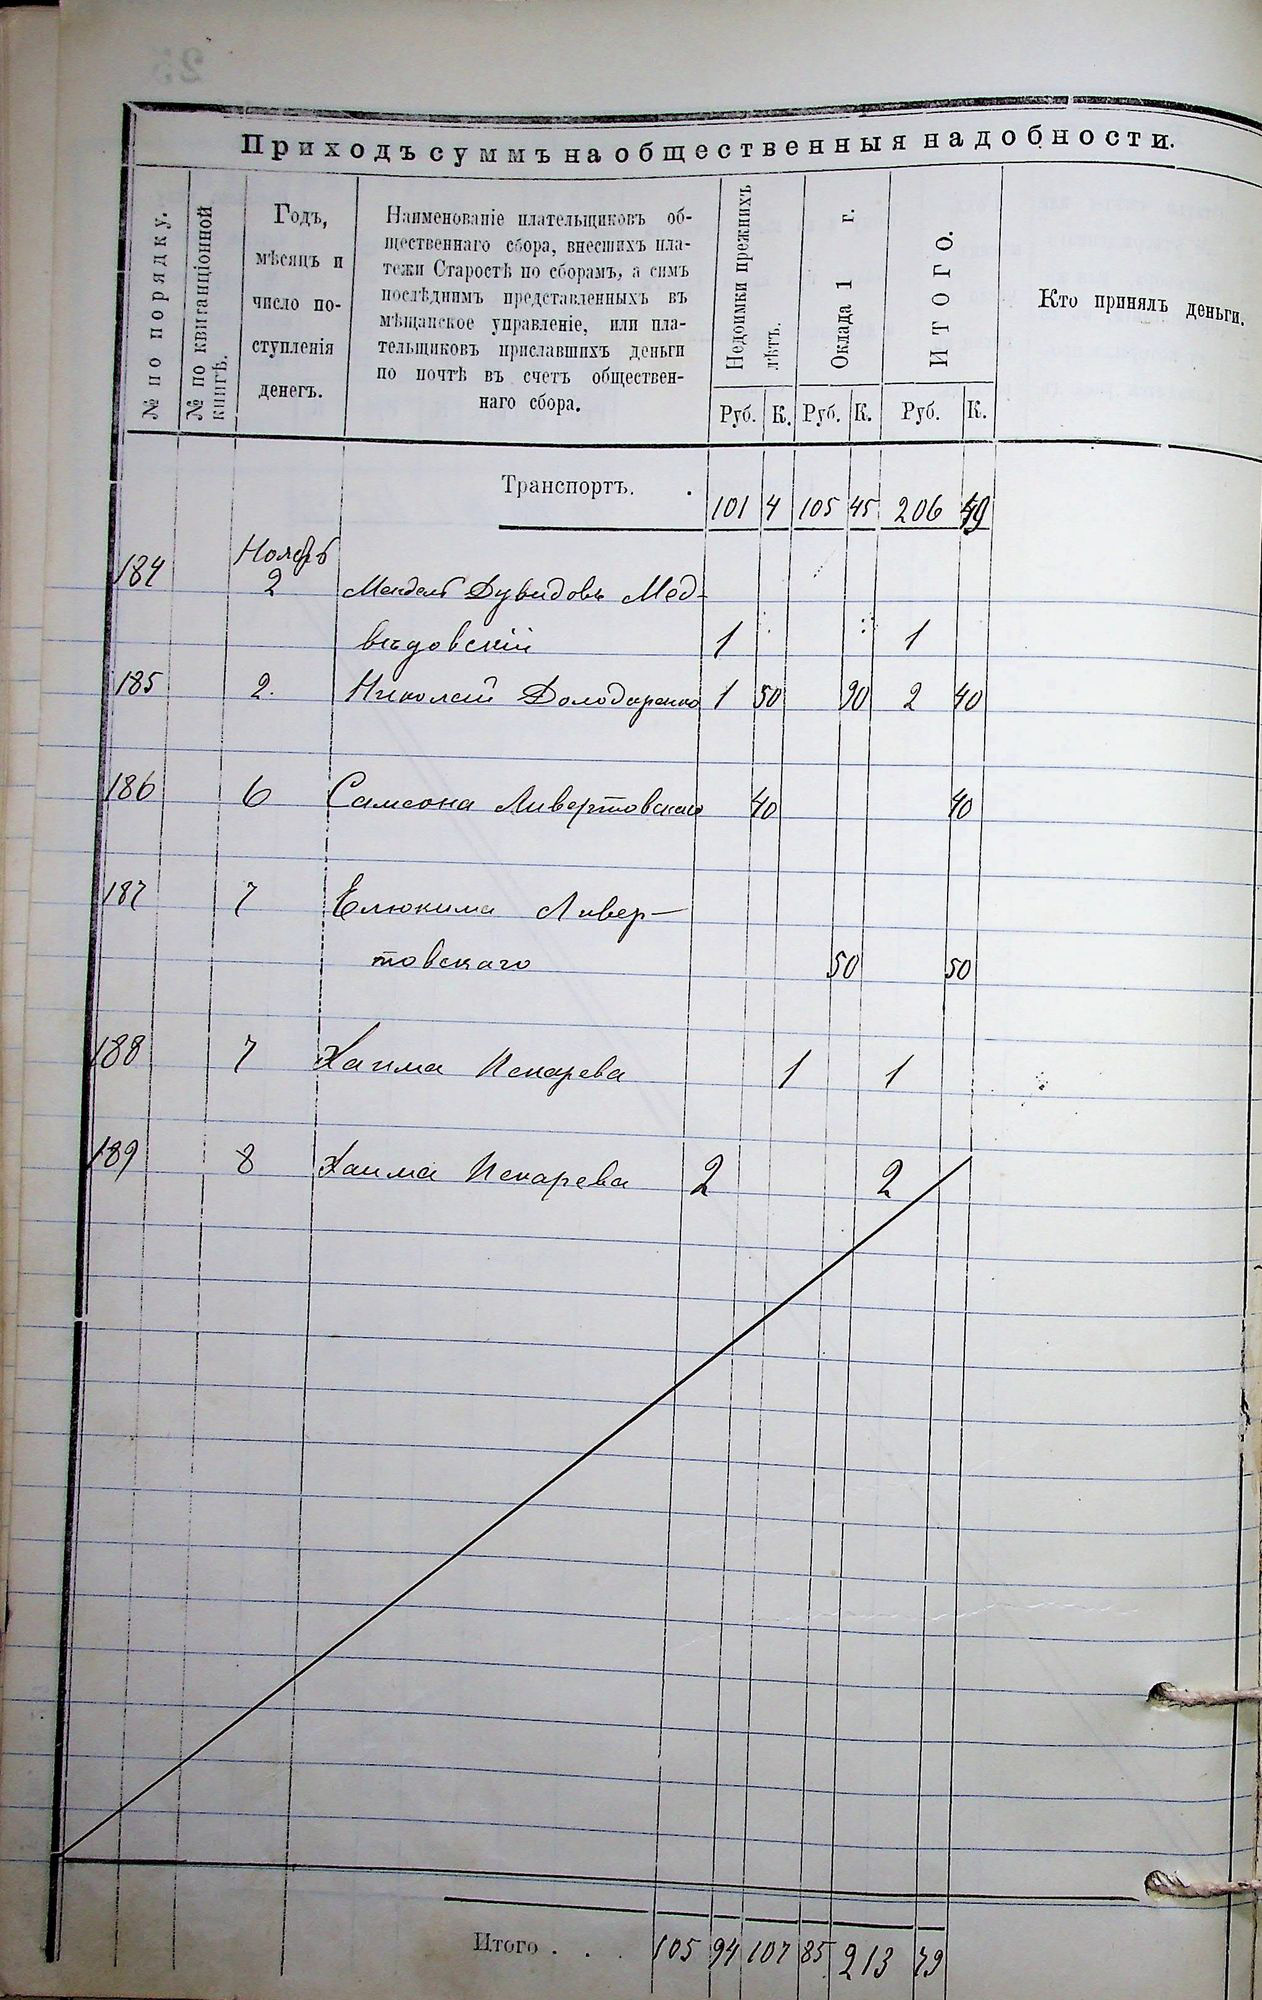 Приходъ суммъ на общественныя надобности.
№ по порядку.
№ по квитанціонной
книгѣ.
Годъ,
мѣсяцъ и
число по-
ступленія
денегъ.
Наименованіе плательщиковъ об-
щественнаго сбора, внесшихъ пла-
тежи Старостѣ по сборамъ, а симъ
послѣднимъ представленныхъ въ
мѣщанское управленіе, или пла-
тельщиковъ приславшихъ деньги
по почтѣ въ счетъ обществен-
наго сбора.
Недоимки прежнихъ
лѣтъ.
Оклада 1 г.
Итого.
Кто принялъ деньги.
Руб. К. Руб. К. Руб. К.
Транспортъ. . 101 4 105 45 206 49
184 Ноябрь
2 Дувидовъ Мед-
вѣдовскій 1 1
185 2. Николай Володаренко 1 50 90 2 40
186 6 Самсона Ливертовскаго 40 40
187 7 Елюкима Ливер-
товскаго 50 50
188 7 Хаима Искарева 1 1
189 8 Хаима Искарева 2 2
Итого . . . 105 94 107 85 213 79